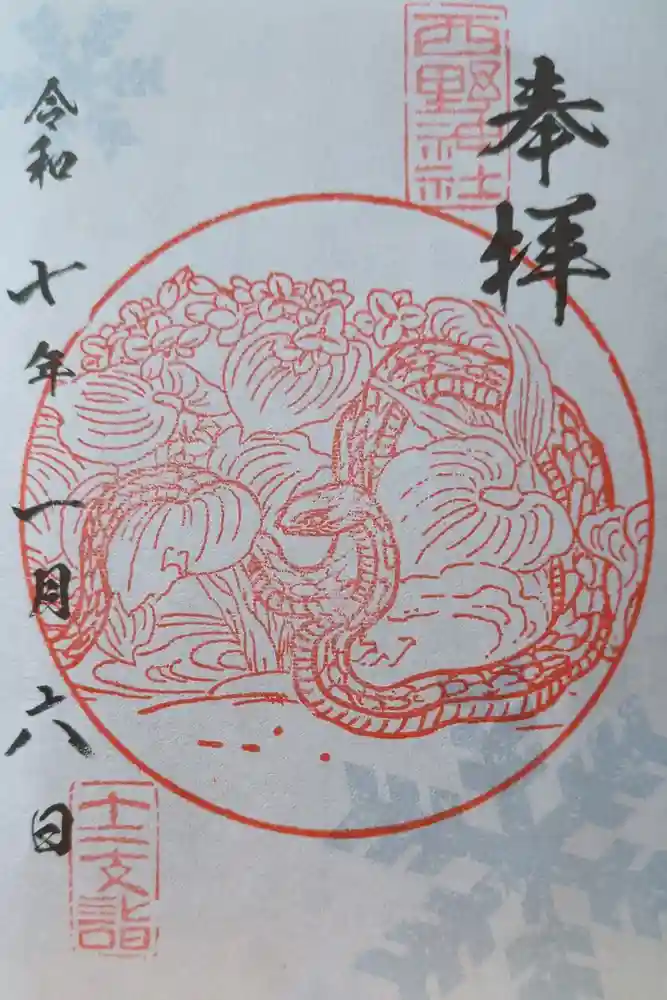 奉拝
西野神社
令和七年一月六日
十二支詣